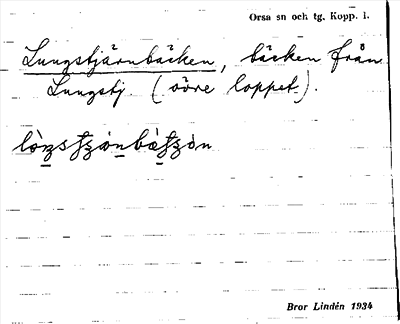 Orsa sn och tg. Kopp. l.
Lungstjärnbäcken, bäcken från
Lungstj. (övre loppet).
Bror Lindén 1934